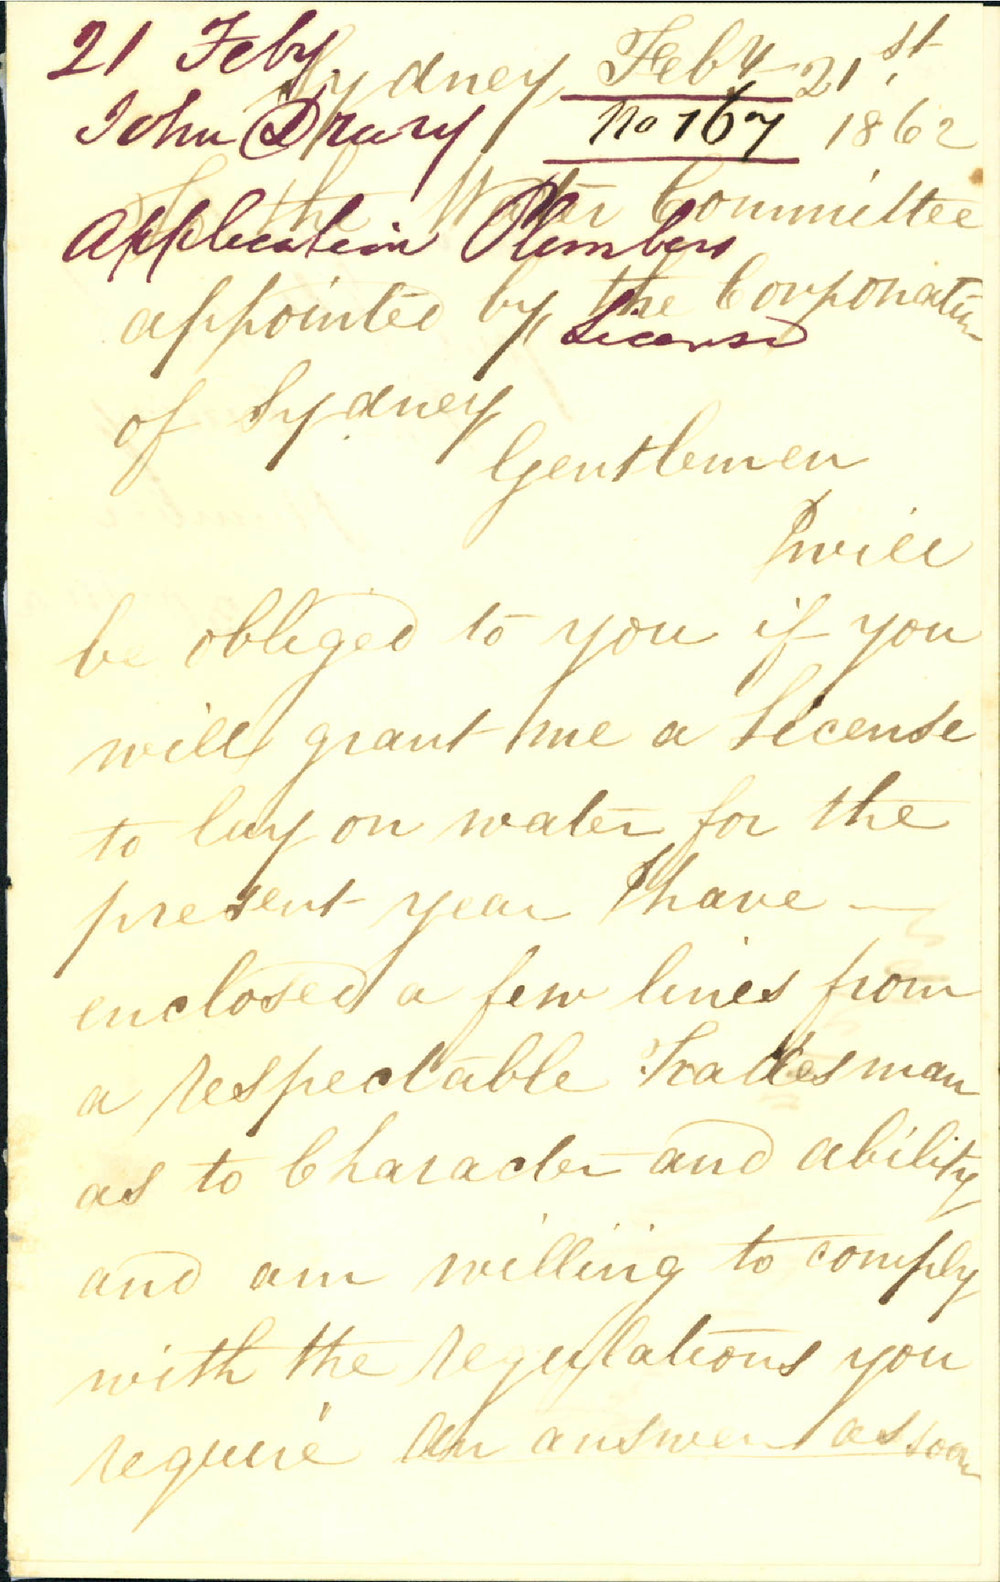 21 Feby
Sydney Feby 21st
John Drury
No 167 1862
To the Water Committee
Application Plumbers
appointed by the Corporation
License
of Sydney
Gentlemen
I will
be obliged to you if you
will grant me a License
to lay on water for the
present year I have
enclosed a few lines from
a respectable Tradesman
as to Character and ability
and am willing to comply
with the regulations you
require an answer as soon